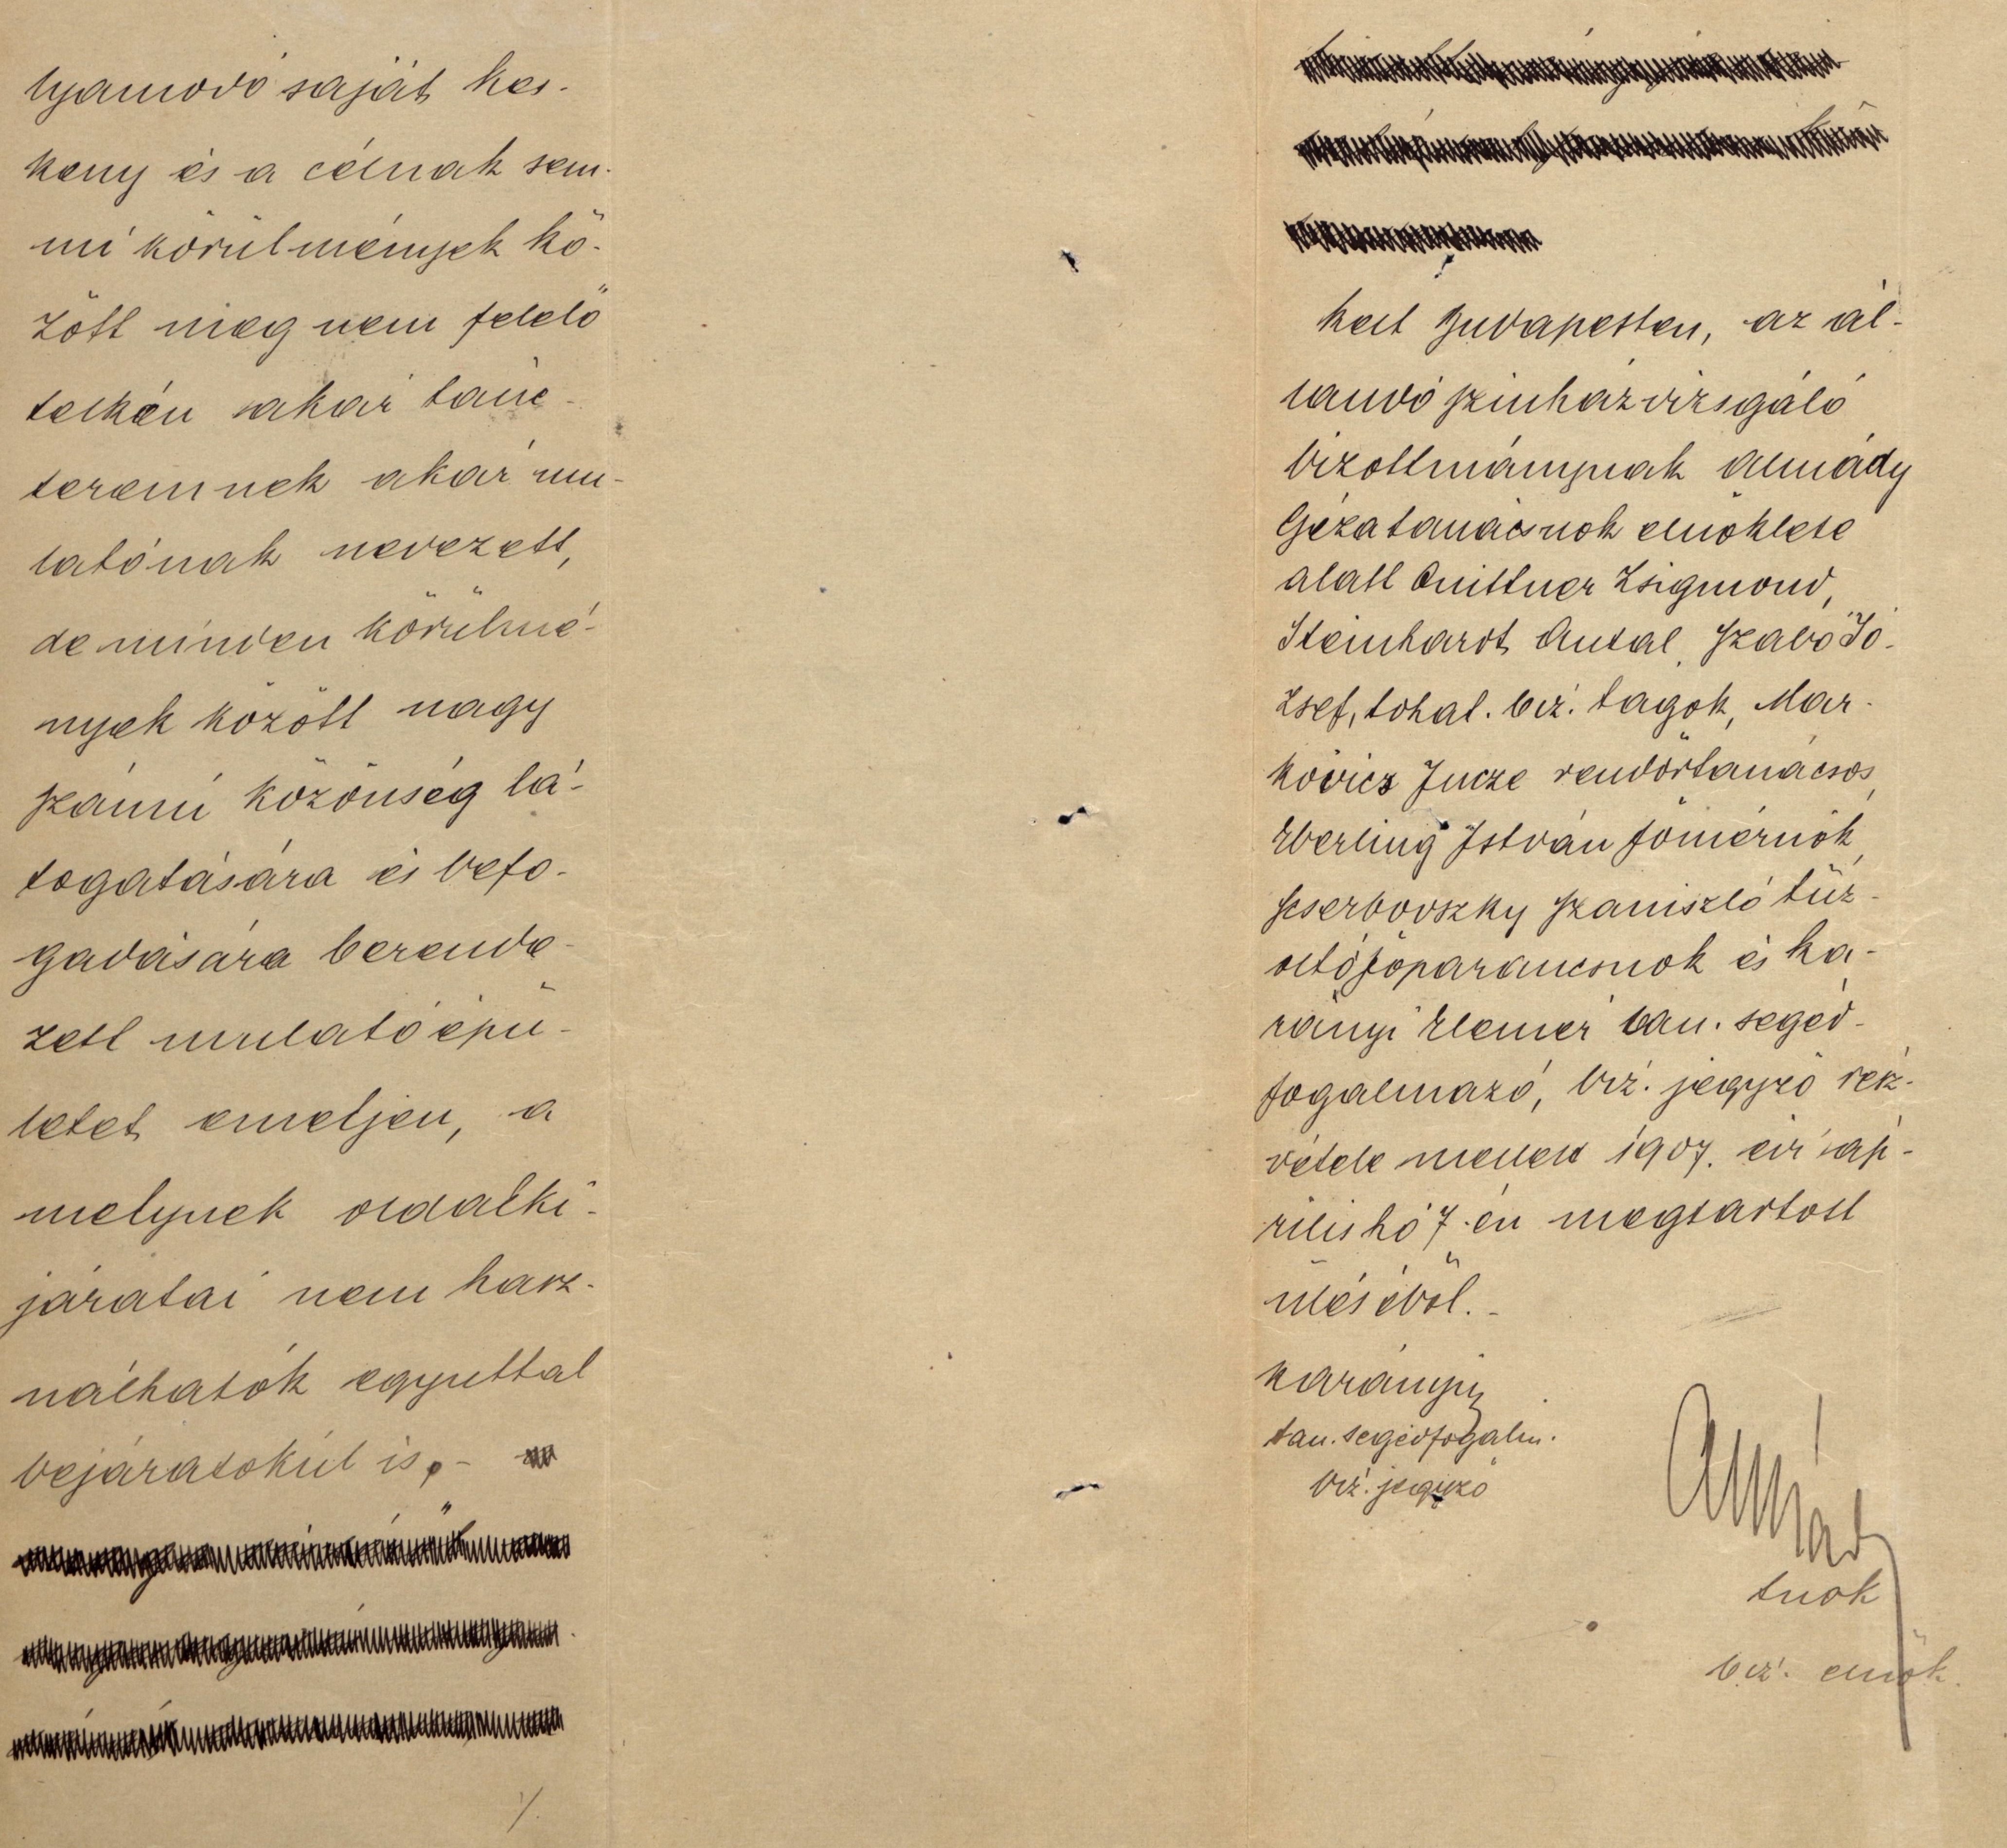 lyamodó saját kes-
keny és a célnak sem-
mi körülmények kö-
zött meg nem felelő
telkén akár tánc-
teremnek akár mu-
latónak nevezett,
de minden körülmé-
nyek között nagy
számú közönség lá-
togatására és befo-
gadására berende-
zett mulató épü-
letet emeljen, a
melynek oldalki-
járatai nem hasz-
nálhatók egyuttal
bejáratokúl is. -
/.
Kelt Budapesten, az ál-
landó szinházvizsgáló
bizottmánynak Almády
Géza tanácsnok elnöklete
alatt Quittner Zsigmond,
Steinhardt Antal, Szabó Jó-
zsef, tőhat. biz. tagok, Mar-
kovics Incze rendőrtanácsos,
Eberling István főmérnök,
Scserbovszky Szaniszló tűz-
oltófőparancsnok és Ka-
rányi Elemér tan. segéd-
fogalmazó, biz. jegyző rész-
vétele mellett 1907. évi áp-
rilis hó 7-én megtartott
üléséből. -
Karányi
tan. segédfogalm.
biz. jegyző
Almády
tnok
biz. elnök.